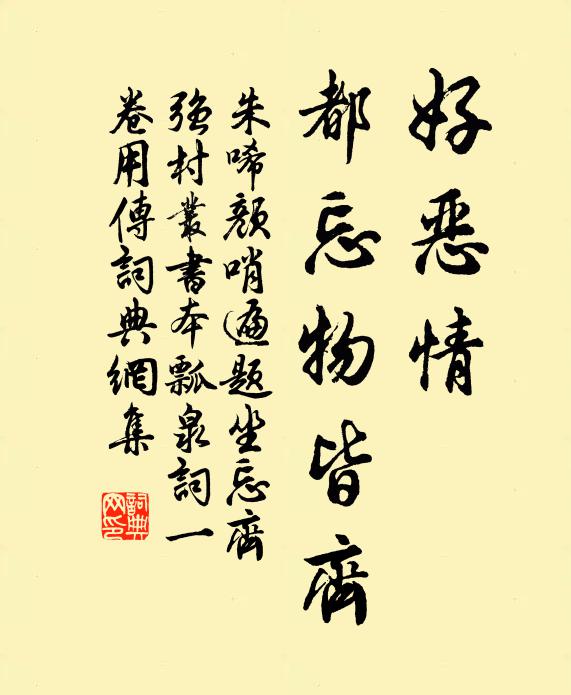 好惡情
都忘物皆齊
朱晞顏哨遍題坐忘齋
彊村叢書本瓢泉詞一
卷用傳詞典網集
詞典網印